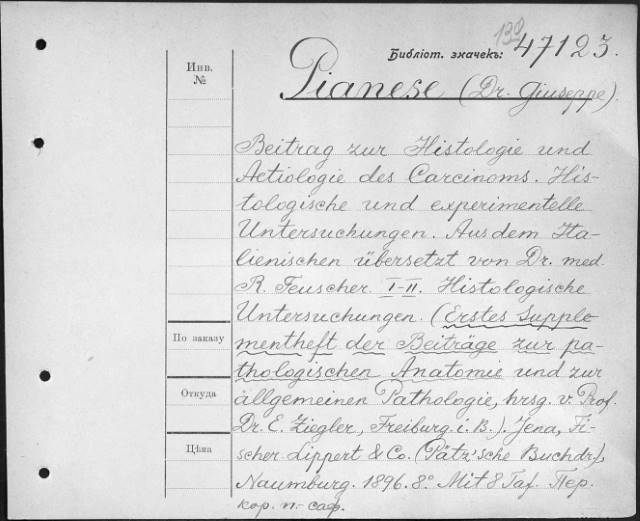 132
Библіот. значекъ: 47123.
Инв.
№
Pianese (Dr. Giuseppe).
Beitrag zur Histologie und
Aetiologie des Carcinoms. His-
tologische und experimentelle
Untersuchungen. Aus dem Ita-
lienischen übersetzt von Dr. med.
R. Teuscher. I-II. Histologische
Untersuchungen. (Erstes Supple-
По заказу
mentheft der Beiträge zur pa-
thologischen Anatomie und zur
Откуда
allgemeinen Pathologie, hrsg. v. Prof.
Dr. E. Ziegler, Freiburg i. B.). Jena, Fi-
Цѣна
scher. Lippert & Co. (Pätz'sche Buchdr.),
Naumburg. 1896. 8º. Mit 8 Taf. Пер.
кор. п.- саф.